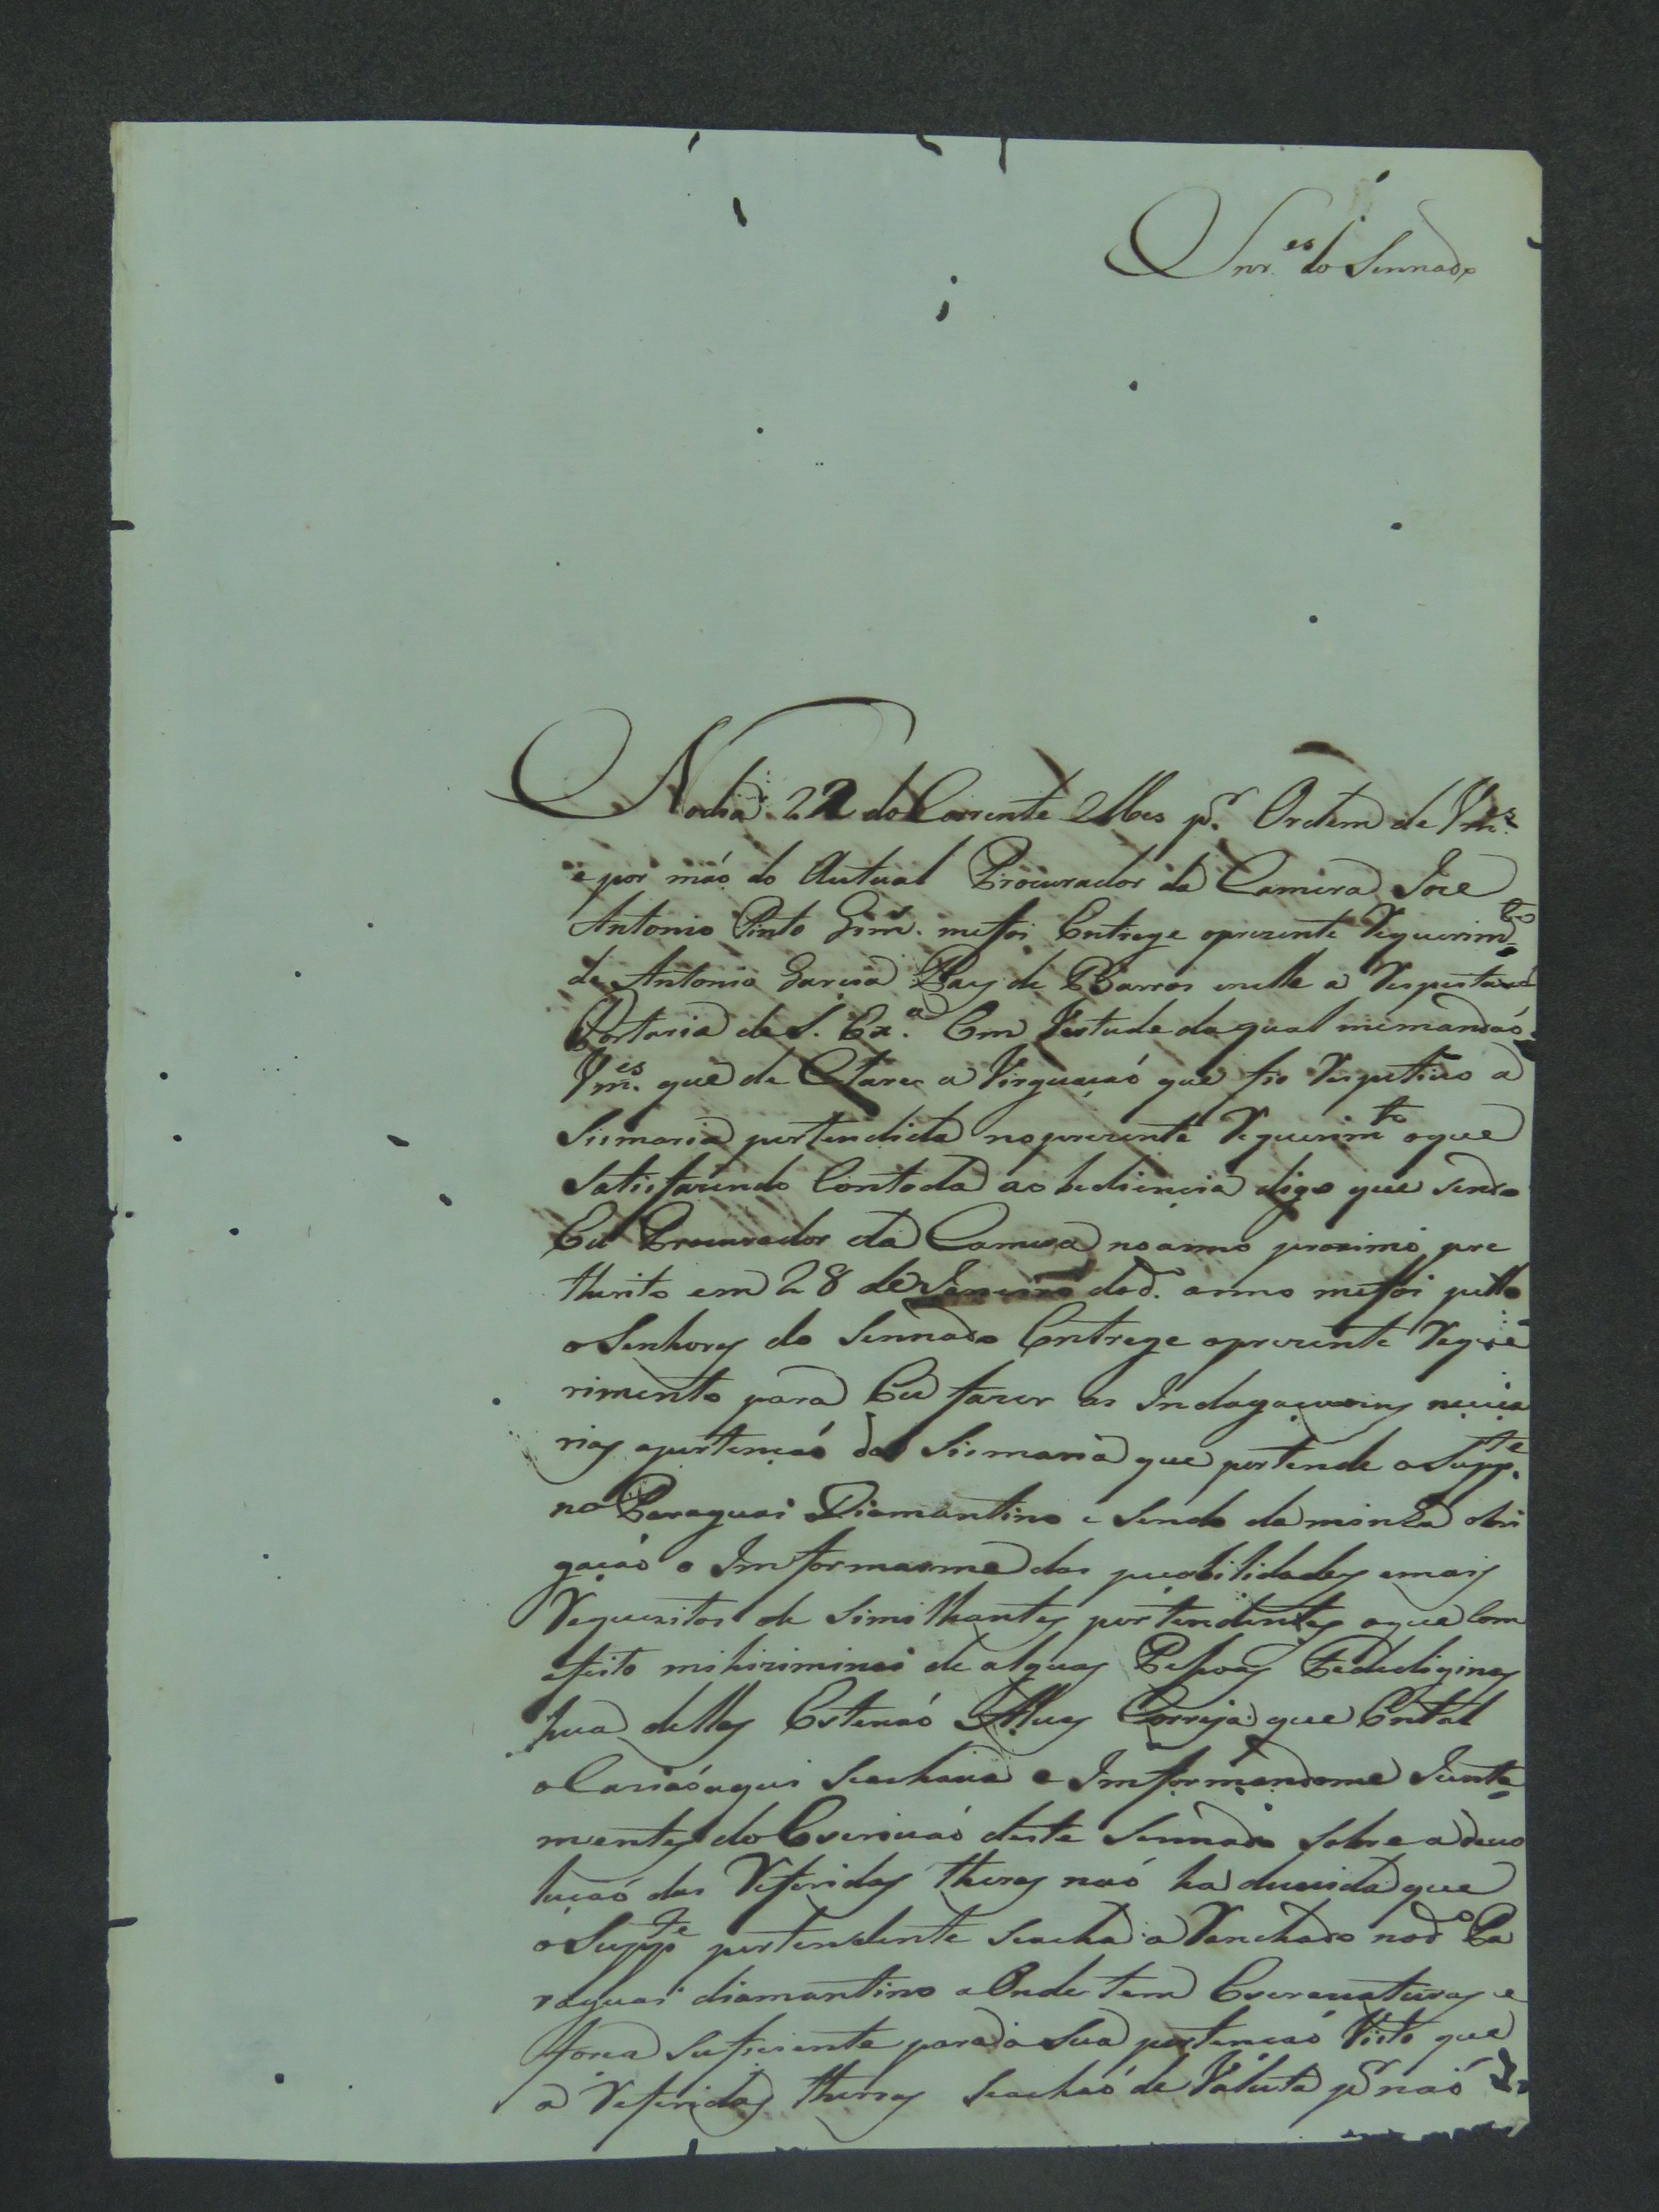 Snr.es do Sennado
No dia 22 do Corrente Mes p.r Ordem de Vm.es
e por maó do Autual Procurador da Camera Joze
Antonio Pinto me foi Entrege oprezente Requerim.to
de Antonio Garcia Pay de Barros enelle a Respeita
Portaria de S. Ex.a Em Vertude da qual memandaó
Vm.es que de Clare a que fis Respetivo a
Sismaria pertendida noprezente Requerim.to oque
Satisfazendo Contoda aobediencia digo que sendo
Eu Procurador da Camera no anno proximo pre
therito em 28 de Janeiro dod. anno mefoi pello
o Senhores do Sennado Entrege oprezente Reque
rimento para Eu fazer as Indagacoens necesa
rias apertençaó da Sismaria que pertende o Supp.te
no Paraguai Diamantino e sendo da minha obri
gaçaó o Imformarme das poscibilidades emais
Requezitos de Similhantes pertendentes oque Com
efeito de alguas Pesoas Fededignas
hua dellas Estevaó Alves Correja que Entaó
aqui seachava e Imformandome Junta
mentes do Escrivaó deste Sennado Sobre adevo
luçaó das Referidas therras naó ha duvida que
o Supp.te pertendente seacha aRanchado nod.o Pa
raguai diamantino aOnde tem Escravaturas e
forca suficiente para a Sua pertencaó Visto que
a Referidas therras seachaó de Valuta p.r naó